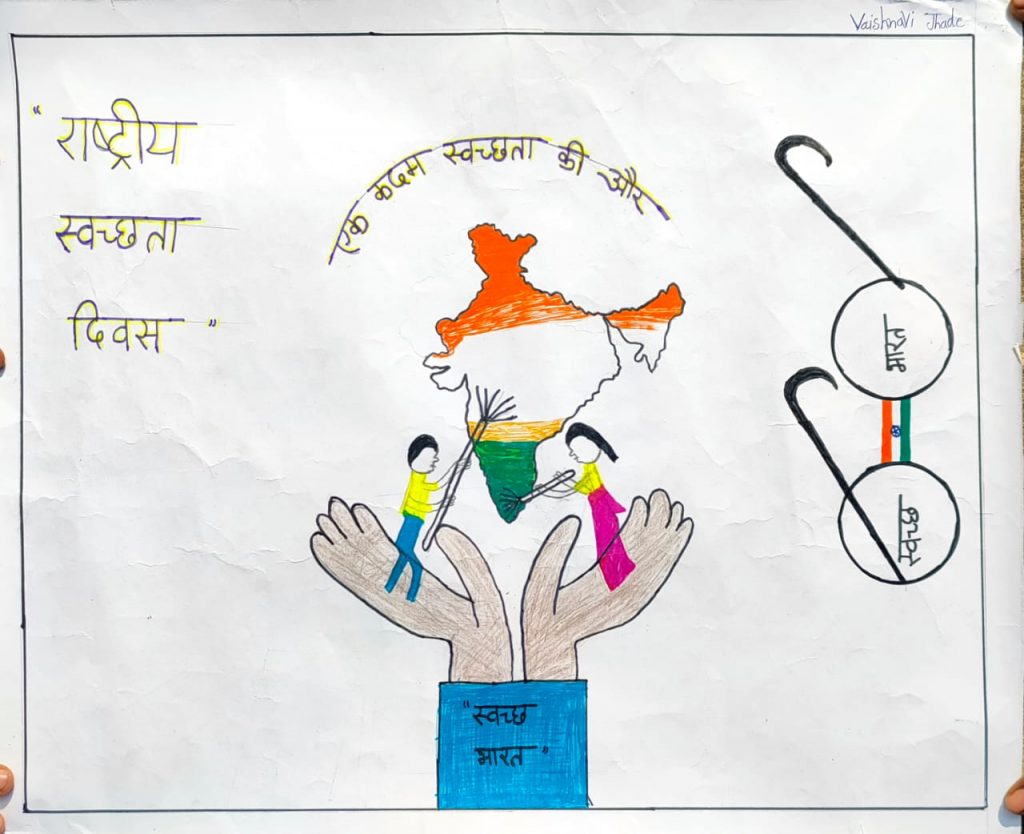 Vaishnavi Thade
"राष्ट्रीय
स्वच्छता
दिवस"
एक कदम स्वच्छता की और
भारत
स्वच्छ
"स्वच्छ
भारत"